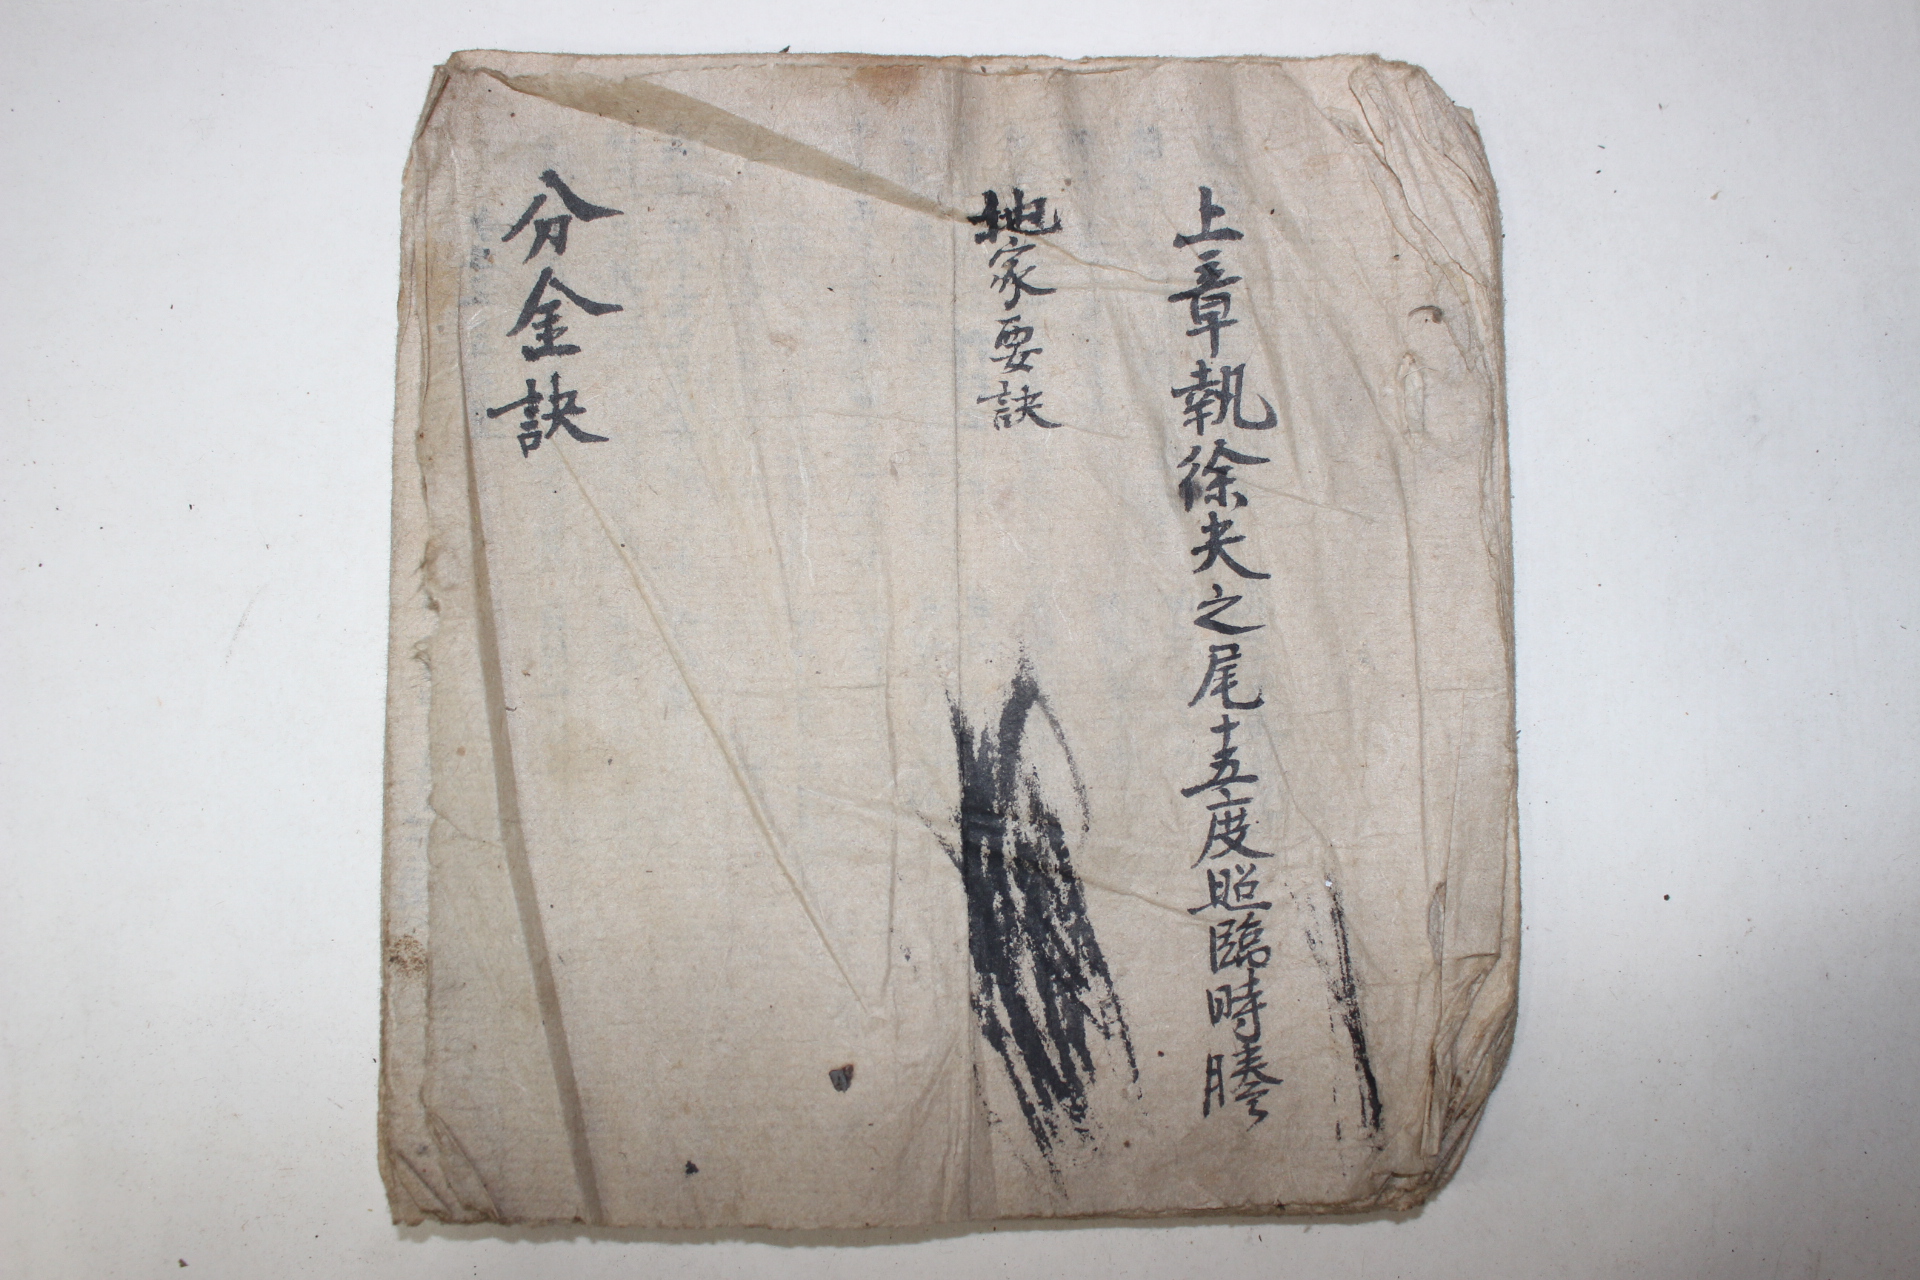 上章執徐夾之尾十五度照臨時謄
地家要訣
分金訣